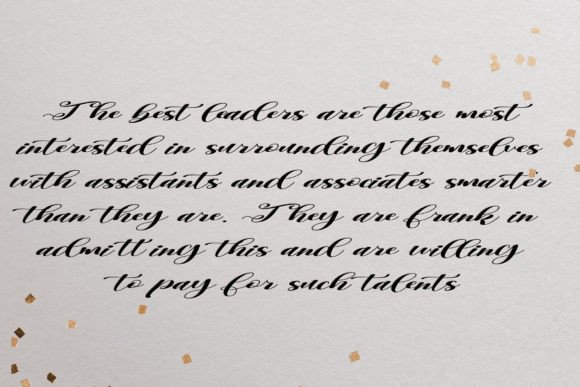 The best leaders are those most
interested in surrounding themselves
with assistants and associates smarter
than they are. They are frank in
admitting this and are willing
to pay for such talents